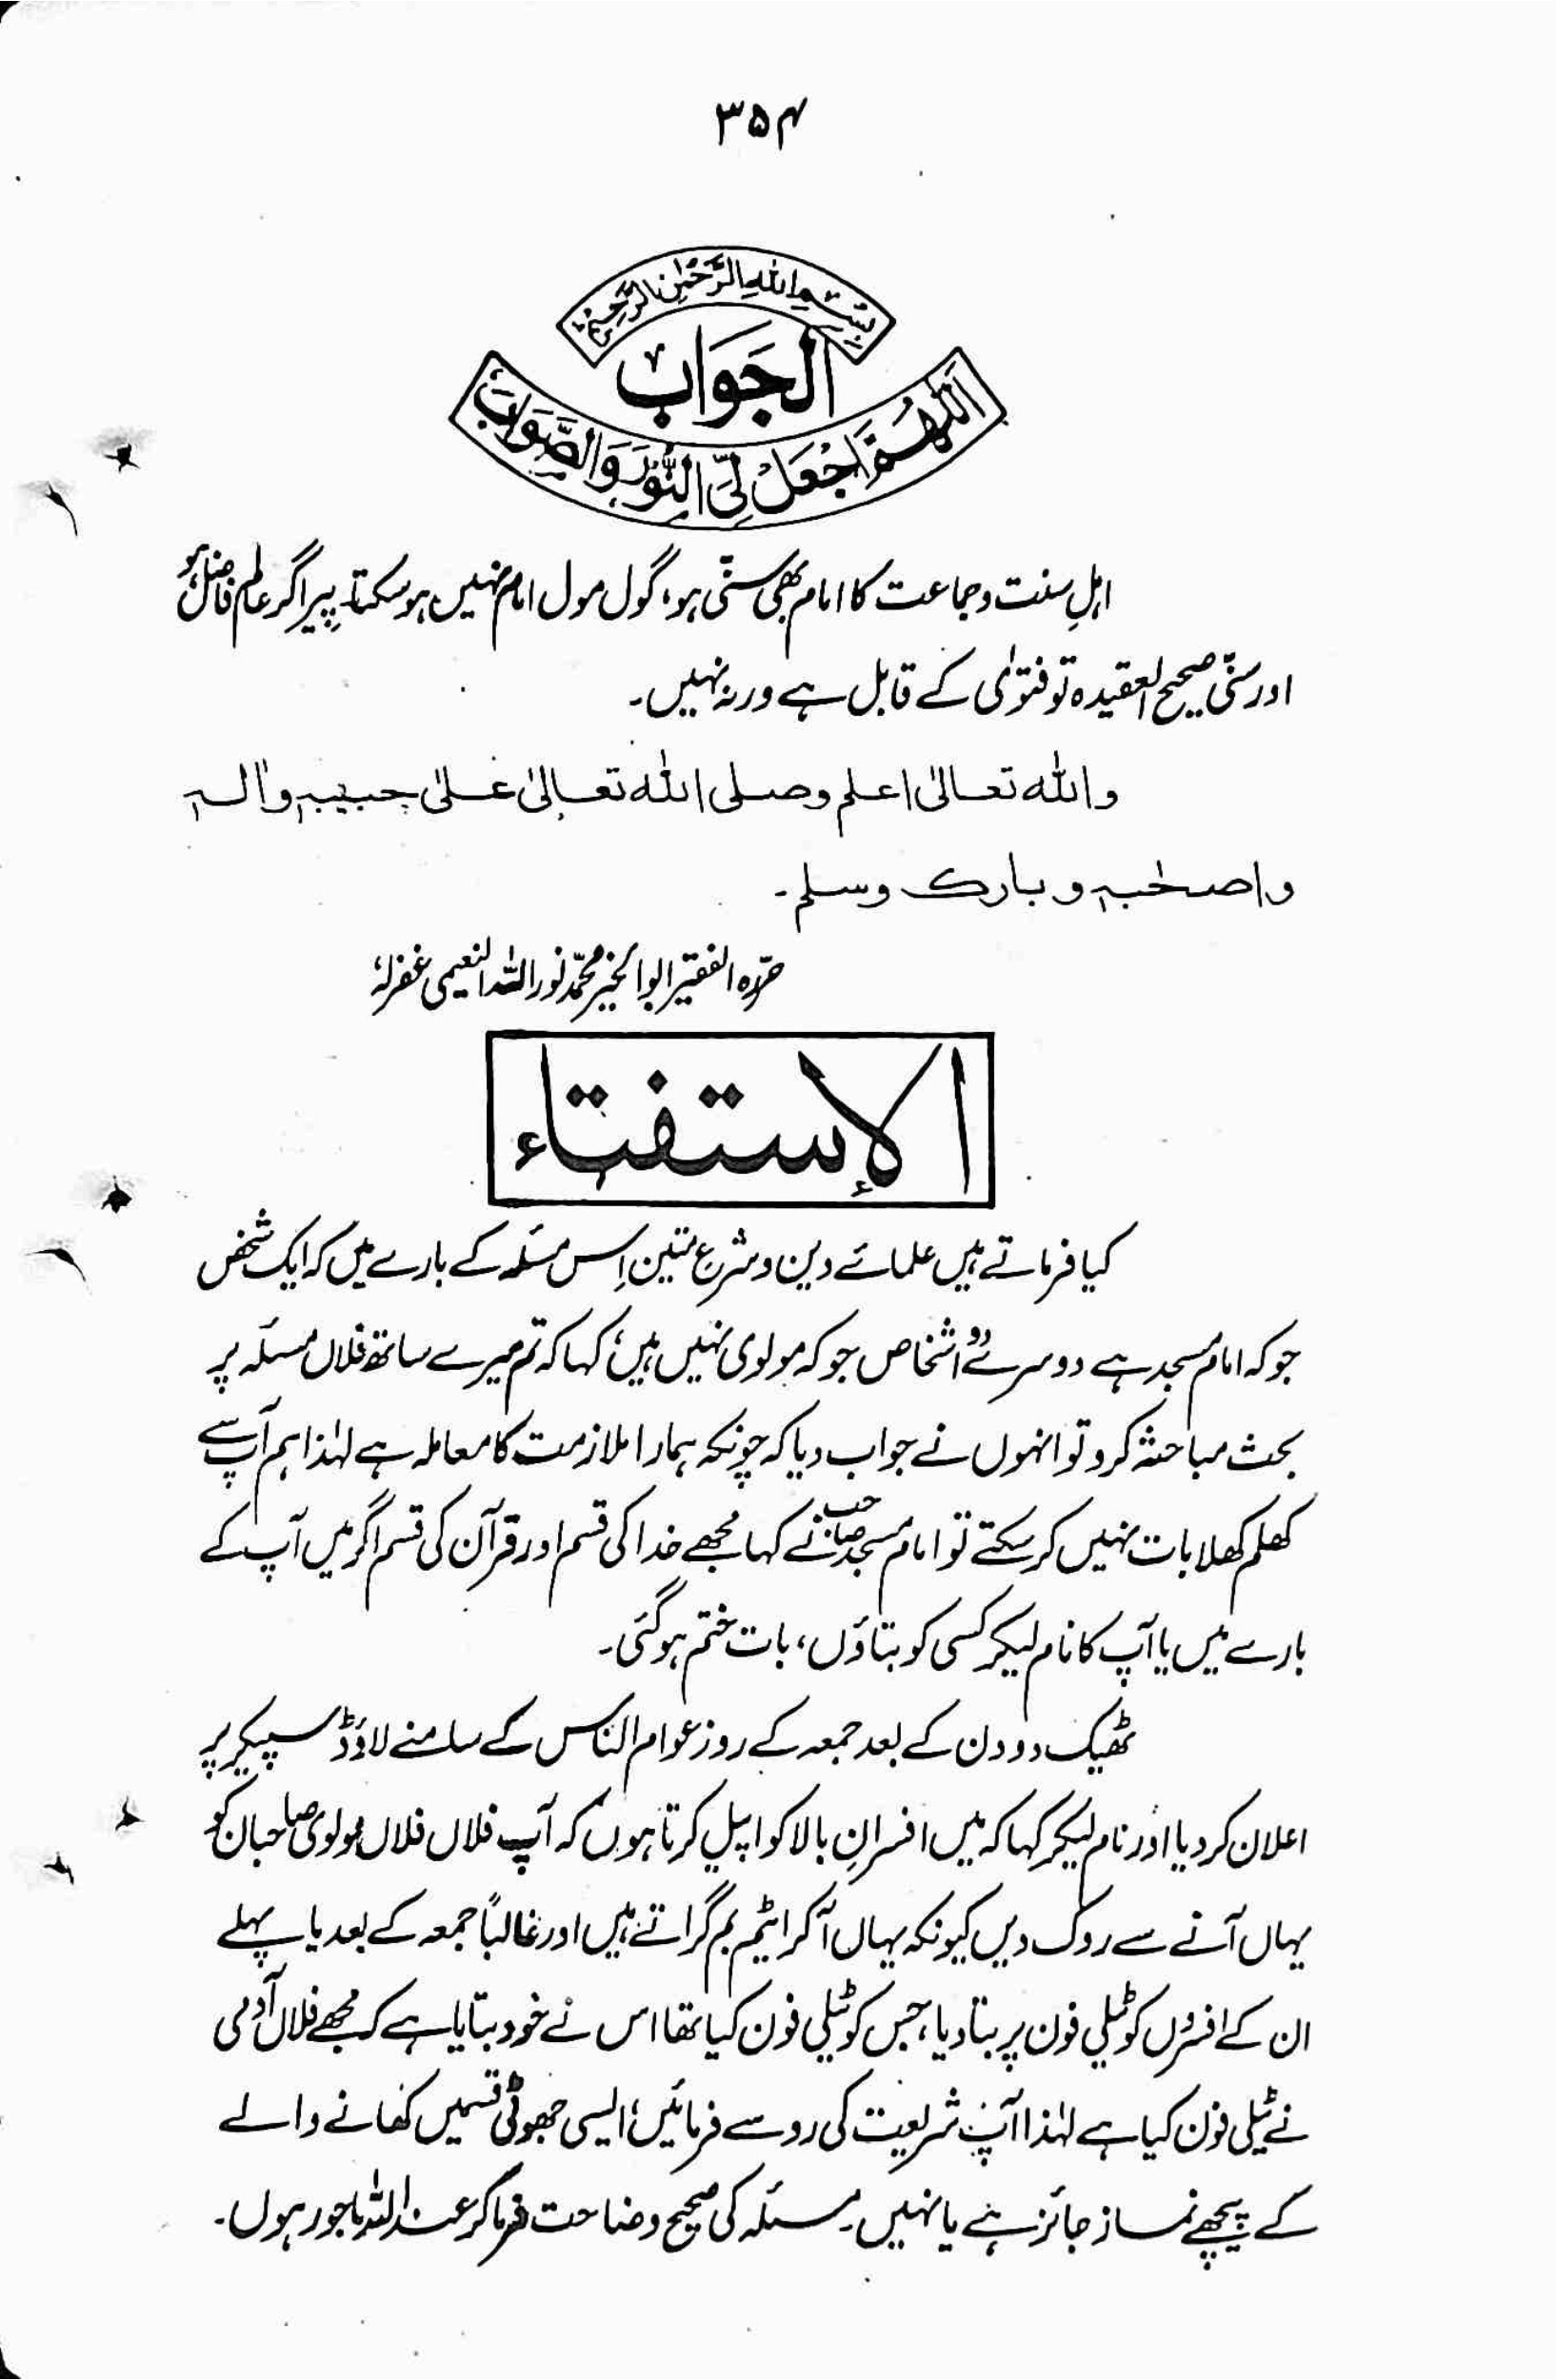 ۳۵۴
بِسْمِ اللهِ الرَّحْمٰنِ الرَّحِيْمِ
الجَوَاب
اَللّٰهُمَّ اجْعَلْ لِيَ النُّوْرَ وَالصَّوَابَ
اہلِ سنت وجماعت کا امام بھی سنّی ہو، گول مول امام نہیں ہوسکتا۔ پیر اگر عالم فاضل ہو
اور سنّی صحیح العقیدہ تو فتوٰی کے قابل ہے ورنہ نہیں۔
واللہ تعالیٰ اعلم وصلی اللہ تعالیٰ علیٰ حبیبہٖ واٰلہٖ
واصحٰبہٖ وبارک وسلم۔
حرّرہ الفقیر ابوالخیر محمّد نور اللہ النعیمی غفرلہٗ
الإستفتاء
کیا فرماتے ہیں علمائے دین و شرع متین اِس مسئلہ کے بارے میں کہ ایک شخص
جو کہ امام مسجد ہے دوسرے دو اشخاص جو کہ مولوی نہیں ہیں، کہا کہ تم میرے ساتھ فلاں مسئلہ پر
بحث مباحثہ کرو تو انہوں نے جواب دیا کہ چونکہ ہمارا ملازمت کا معاملہ ہے لہٰذا ہم آپ سے
کھلم کھلا بات نہیں کرسکتے تو امام مسجد صاحب نے کہا مجھے خدا کی قسم اور قرآن کی قسم اگر میں آپ کے
بارے میں یا آپ کا نام لیکر کسی کو بتاؤں، بات ختم ہوگئی۔
ٹھیک دو دن کے بعد جمعہ کے روز عوام الناس کے سامنے لاؤڈ سپیکر پر
اعلان کردیا اور نام لیکر کہا کہ میں افسرانِ بالا کو اپیل کرتا ہوں کہ آپ فلاں فلاں مولوی صاحبان کو
یہاں آنے سے روک دیں کیونکہ یہاں آکر ایٹم بم گراتے ہیں اور غالباً جمعہ کے بعد یا پہلے
ان کے افسروں کو ٹیلی فون پر بتا دیا، جس کو ٹیلی فون کیا تھا اس نے خود بتایا ہے کہ مجھے فلاں آدمی
نے ٹیلی فون کیا ہے لہٰذا آپ شریعت کی رو سے فرمائیں، ایسی جھوٹی قسمیں کھانے والے
کے پیچھے نماز جائز ہے یا نہیں۔ مسئلہ کی صحیح وضاحت فرما کر عند اللہ ماجور ہوں۔